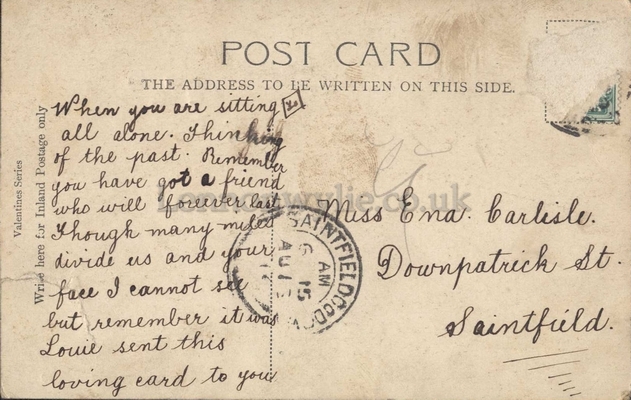 POST CARD
THE ADDRESS TO BE WRITTEN ON THIS SIDE.
Valentines Series
Write here for Inland Postage only
When you are sitting
all alone. Thinking
of the past. Remember
you have got a friend
who will forever last
Though many miles
divide us and your
face I cannot see
but remember it was
Louie sent this
loving card to you
Miss Ena. Carlisle.
Downpatrick St.
Saintfield.
SAINTFIELD CO. DOWN
AM
15
AU